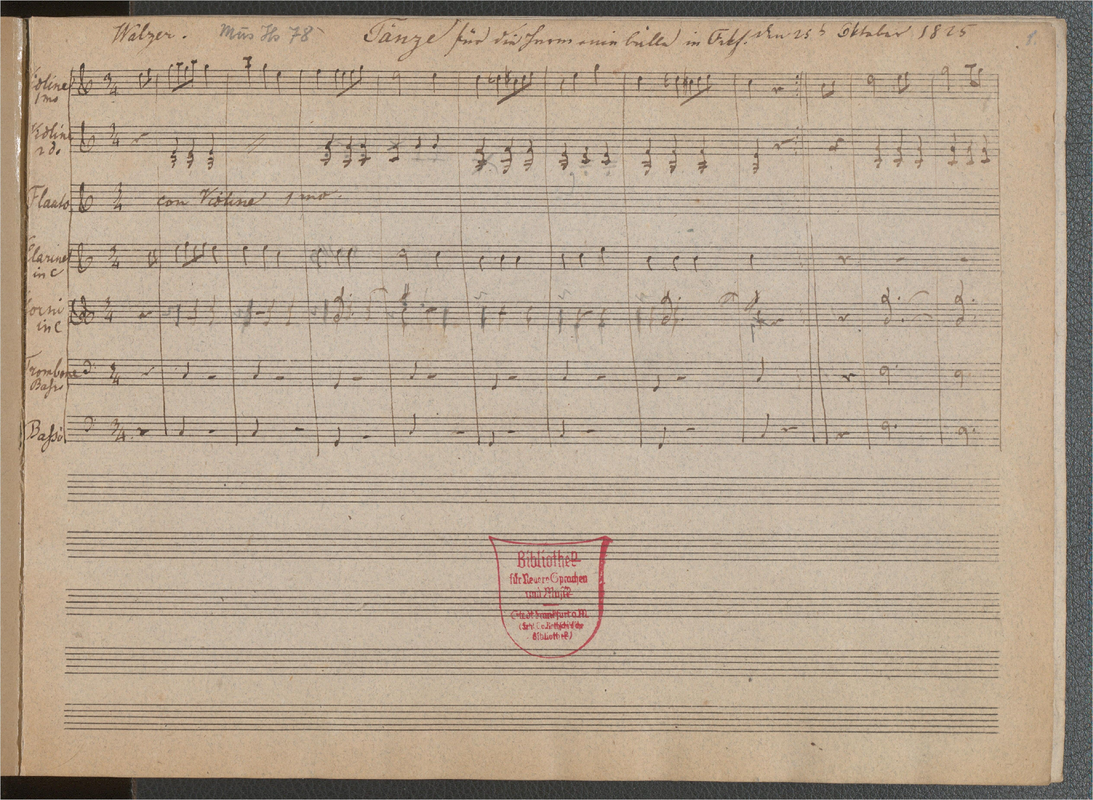 Walzer. Mus Hs 78 Tänze für die in den 25 Oktober 1825 1.
Violine
1mo
Violine
2do.
Flauto con Violine 1mo.
Clarinet
in C
Corni
in C
Trombone
Basso
Basso
Bibliothek
für Neuere Sprachen
und Musik
Stadt Frankfurt a. M.
Bibliothek)